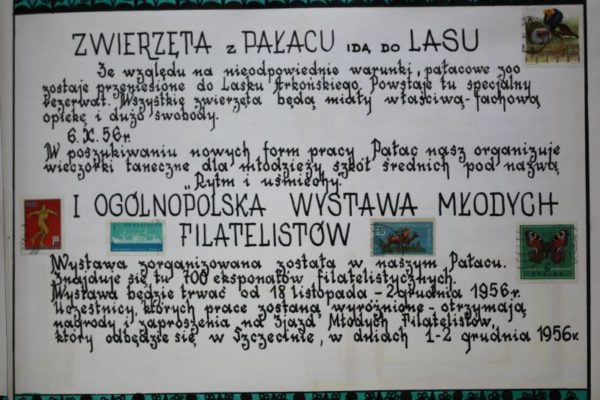 ZWIERZĘTA z PAŁACU IDĄ DO LASU
Ze względu na nieodpowiednie warunki, pałacowe zoo
zostaje przeniesione do Lasku Arkońskiego. Powstaje tu specjalny
rezerwat. Wszystkie zwierzęta będą miały właściwą-fachową
opiekę i dużo swobody.
6.X.56r.
W poszukiwaniu nowych form pracy Pałac nasz organizuje
wieczorki taneczne dla młodzieży szkół średnich pod nazwą
„Rytm i uśmiechy"
I OGÓLNOPOLSKA WYSTAWA MŁODYCH
FILATELISTÓW
Wystawa zorganizowana została w naszym Pałacu.
Znajduje się tu 700 eksponatów filatelistycznych.
Wystawa będzie trwać od 18 listopada - 2 grudnia 1956 r.
Uczestnicy, których prace zostaną wyróżnione - otrzymają
nagrody i zaproszenia na Zjazd Młodych Filatelistów,
który odbędzie się w Szczecinie, w dniach 1-2 grudnia 1956r.